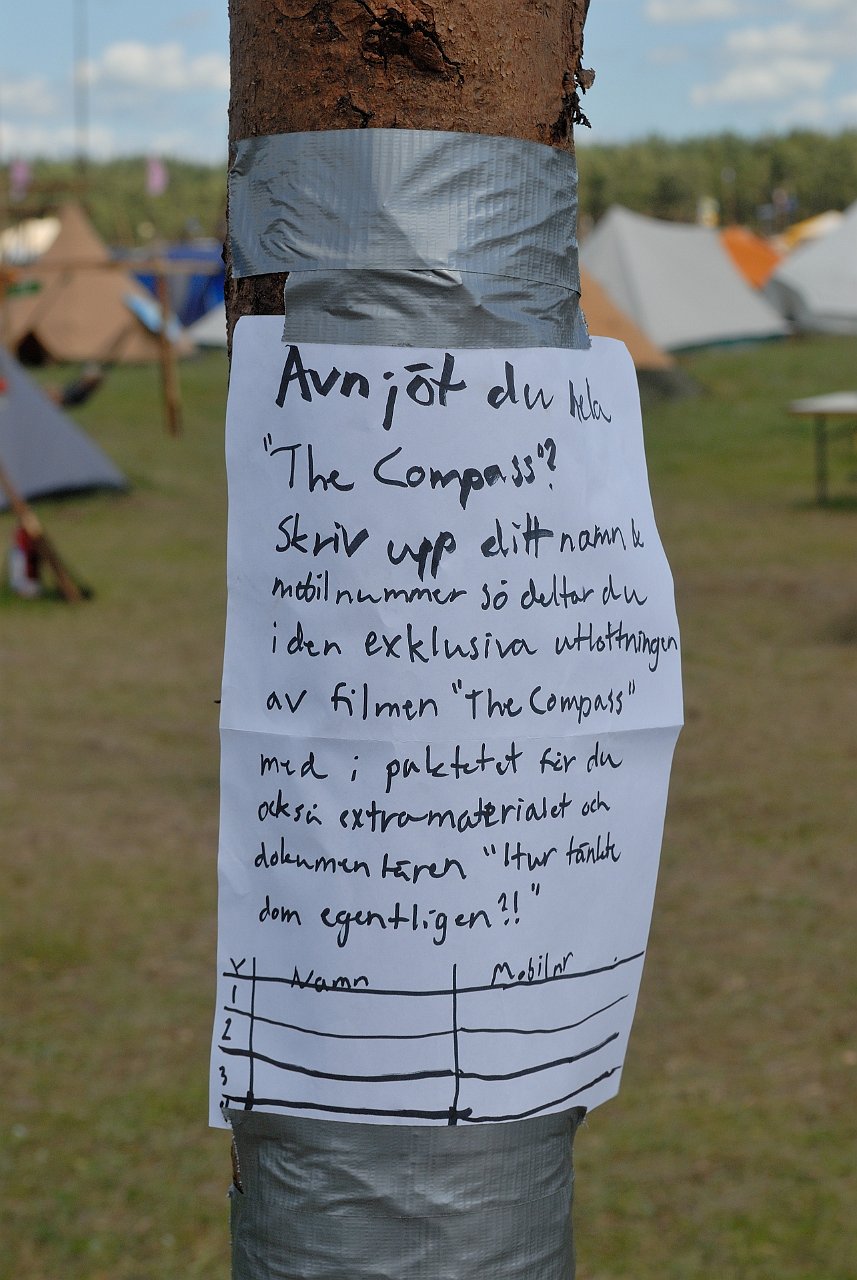 Avnjöt du hela
"The Compass"?
Skriv upp ditt namn &
mobilnummer så deltar du
i den exklusiva utlottningen
av filmen "The Compass"
med i paktetet får du
också extramaterialet och
dokumentären "Hur tänkte
dom egentligen?!"
Namn Mobilnr
1
2
3